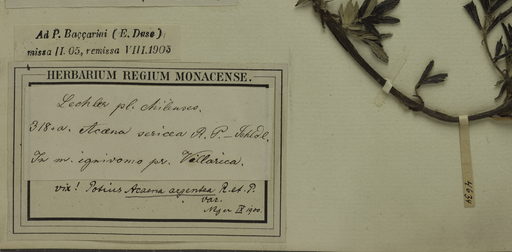 Ad P. Baccarini (E. Duse)
missa II. 05, remissa VIII. 1905
HERBARIUM REGIUM MONACENSE.
Lechler pl. chilenses.
318.a. Acaena sericea R. P. – Schldl.
In m. ignivomo pr. Villarica.
vix! Potius Acaena argentea R. et. P.
var.
Neger IX 1900.